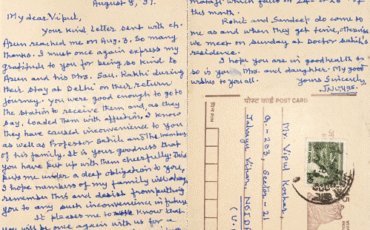 August 8, '97.
My dear Vipul,
Your kind letter sent with ch-
Arun reached me on Aug. 3. So many
thanks. I must once again express my
gratitude to you for being so kind to
Arun and his Mrs. Sau. Rakhi during
their stay at Delhi on their return
journey. You were good enough to go to
the station to receive them and as they
say, loaded them with affection. I know
they have caused inconvenience to you
as well as Professor Sahib and the members
of his family. It is your goodness that
you have put up with them cheerfully. This
puts me under a deep obligation to you,
I hope members of my family will always
remember this and desist from putting
you to any such inconvenience in future
It pleases me to know that
you will be once again with us for a
which falls on
this month.
Rahil and Sandeep do come to
me as and when they get time, otherwise
we meet on Sunday at Doctor Sahib's
residence.
I hope you are in good health &
so is your Mrs. and daughter. My good
wishes to you all.
Yours Sincerely,
POST CARD
Mr Vipul
Sector - 21
Jalvayu Vihar, NOIDA
(U.